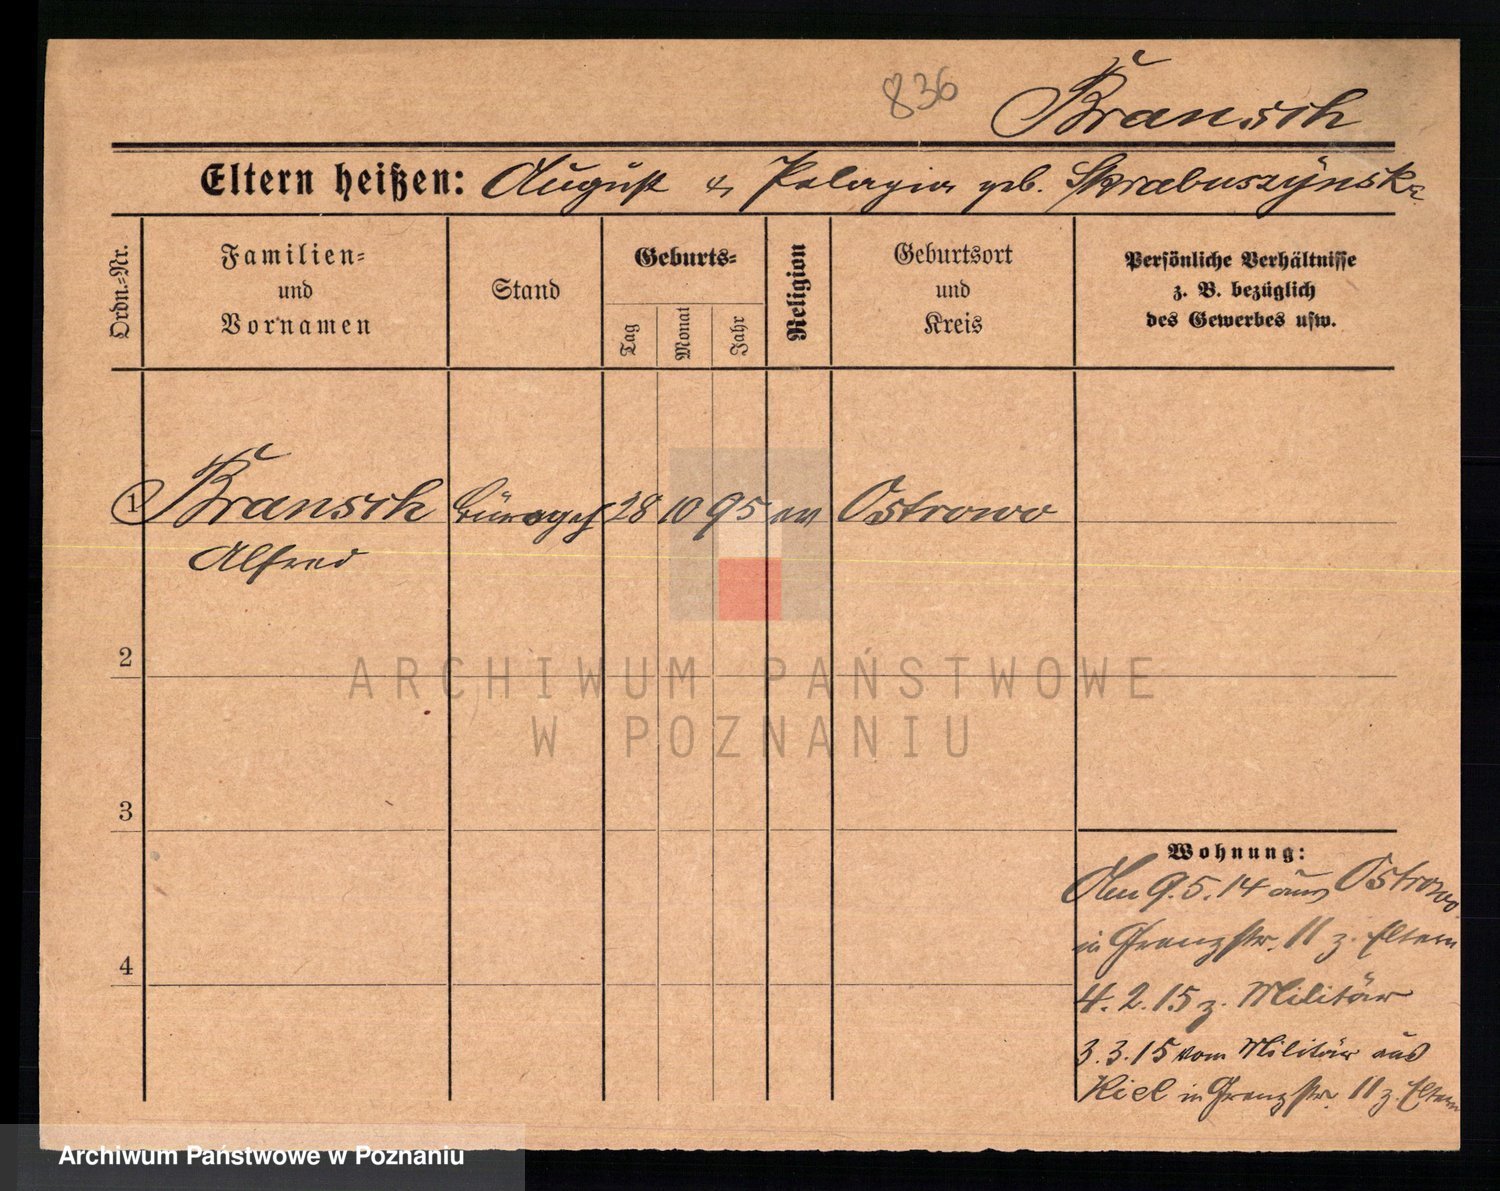 836
Bransch
Eltern heißen: August & Pelagia geb. Skrabuszynska
Ordn.=Nr.
Familien=
und
Vornamen
Stand
Geburts=
Tag
Monat
Jahr
Religion
Geburtsort
und
Kreis
Persönliche Verhältnisse
z. B. bezüglich
des Gewerbes usw.
1 Bransch 28 10 95 ev Ostrowo
Alfred
2
3
4
ARCHIWUM PAŃSTWOWE
W POZNANIU
Wohnung:
Am 9.5.14 aus Ostrowo
in Grenzstr. 11 z. Eltern
4.2.15 z. Militär
3.3.15 vom Militär aus
Kiel in Grenzstr. 11 z. Eltern
Archiwum Państwowe w Poznaniu